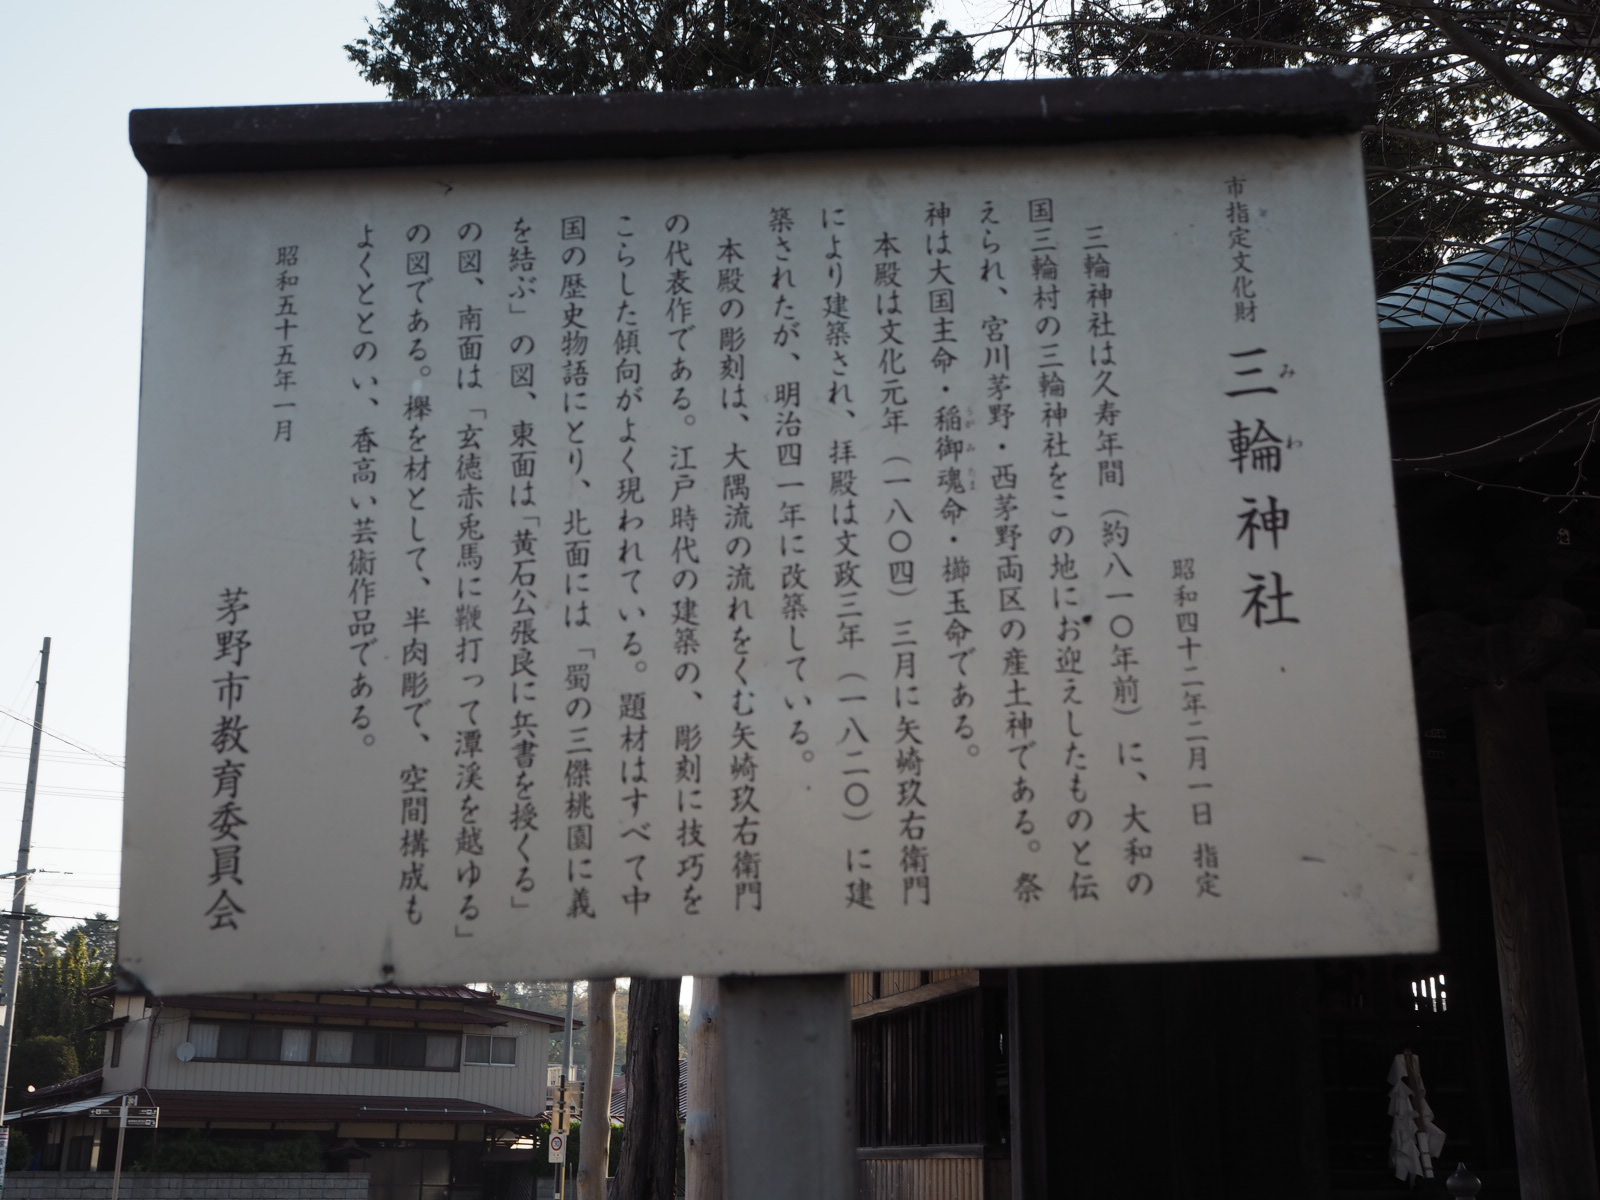 市指定文化財 三輪神社
みわ
昭和四十二年二月一日 指定
三輪神社は久寿年間（約八一〇年前）に、大和の
国三輪村の三輪神社をこの地にお迎えしたものと伝
えられ、宮川茅野・西茅野両区の産土神である。祭
神は大国主命・稲御魂命・櫛玉命である。
本殿は文化元年（一八〇四）三月に矢崎玖右衛門
により建築され、拝殿は文政三年（一八二〇）に建
築されたが、明治四一年に改築している。
本殿の彫刻は、大隅流の流れをくむ矢崎玖右衛門
の代表作である。江戸時代の建築の、彫刻に技巧を
こらした傾向がよく現われている。題材はすべて中
国の歴史物語にとり、北面には「蜀の三傑桃園に義
を結ぶ」の図、東面は「黄石公張良に兵書を授くる」
の図、南面は「玄徳赤兎馬に鞭打って潭渓を越ゆる」
の図である。欅を材として、半肉彫で、空間構成も
よくととのい、香高い芸術作品である。
昭和五十五年一月
茅野市教育委員会